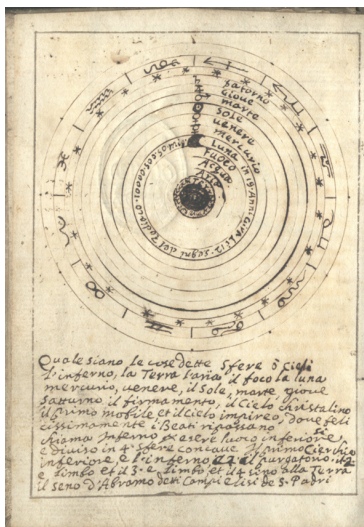 Satorno
Giove
marte
Sole
venere
mercurio
Luna in 19. Anni
fuoco
Acqua
Aria
12. segni del Zodiaco
Quale siano le cose dette Sfere ò Cieli
L'inferno, la Terra l'aria il foco la luna
mercurio, venere, il Sole, marte giove
Satturno il firmamento, il Cielo christalino
il primo mobile et il Cielo impireo, dove feli
cissimamente i Beati ripossano
chiama Inferno p essere luoco inferiore
e diviso in 4 sfere concave il primo Cerchio
inferiore, e l'inferno il 2 il purgatorio
e Limbo et il 3. e Limbo et il 4 sino alla Terra
il seno d'Abramo detti Campi elisi de S. Padri